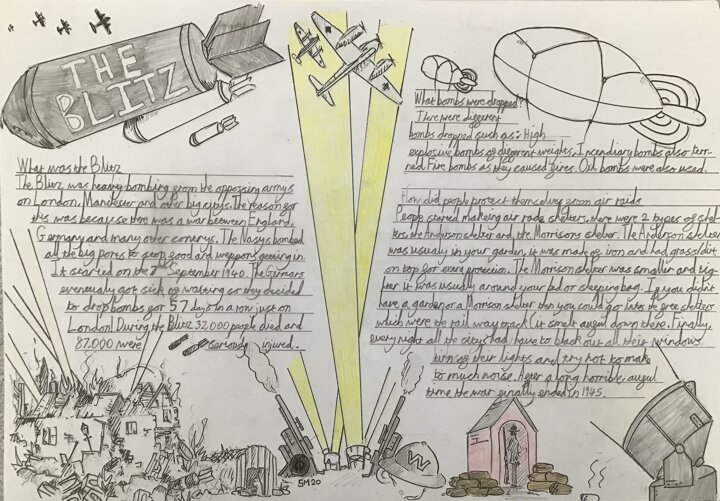 THE
BLITZ
What was the Blitz
The Blitz was heavy bombing from the opposing army's
on London, Manchester and other big citys. The reason for
this was because there was a war between England,
Germany and many other contrys. The Nasys bombed
all the big ports to stop food and weapons geting in.
It started on the 7th September 1940. The Germans
eventualy got sick of waiting so they decided
to drop bombs for 57 days in a row just on
London! During the Blitz 32,000 people died and
87,000 were seriously injured.
What bombs were dropped?
There were different
bombs dropped such as: High
explosive bombs of different weights, Incendiary bombs also ter-
med Fire bombs as they caused fires. Oil bombs were also used.
How did people protect themselves from air raids
People started making air rade shelters, there were 2 types of shel-
ters, the Anderson shelter and the Morrisons shelter. The Anderson shelter
was usualy in your garden, it was made of iron and had grass/dirt
on top for extra protection. The Morrison shelter was smaller and
it was usualy around your bed or sleeping bag. If you didn't
have a garden or a Morrison shelter then you could go into the free shelters
which were the rail way track (it smelt awful down there). Finally,
every night all the citys had have to black out all their windows
turn of their lights and try not to make
to much noise. After a long horrible, awful
time the war finally ended in 1945.
W
SM20